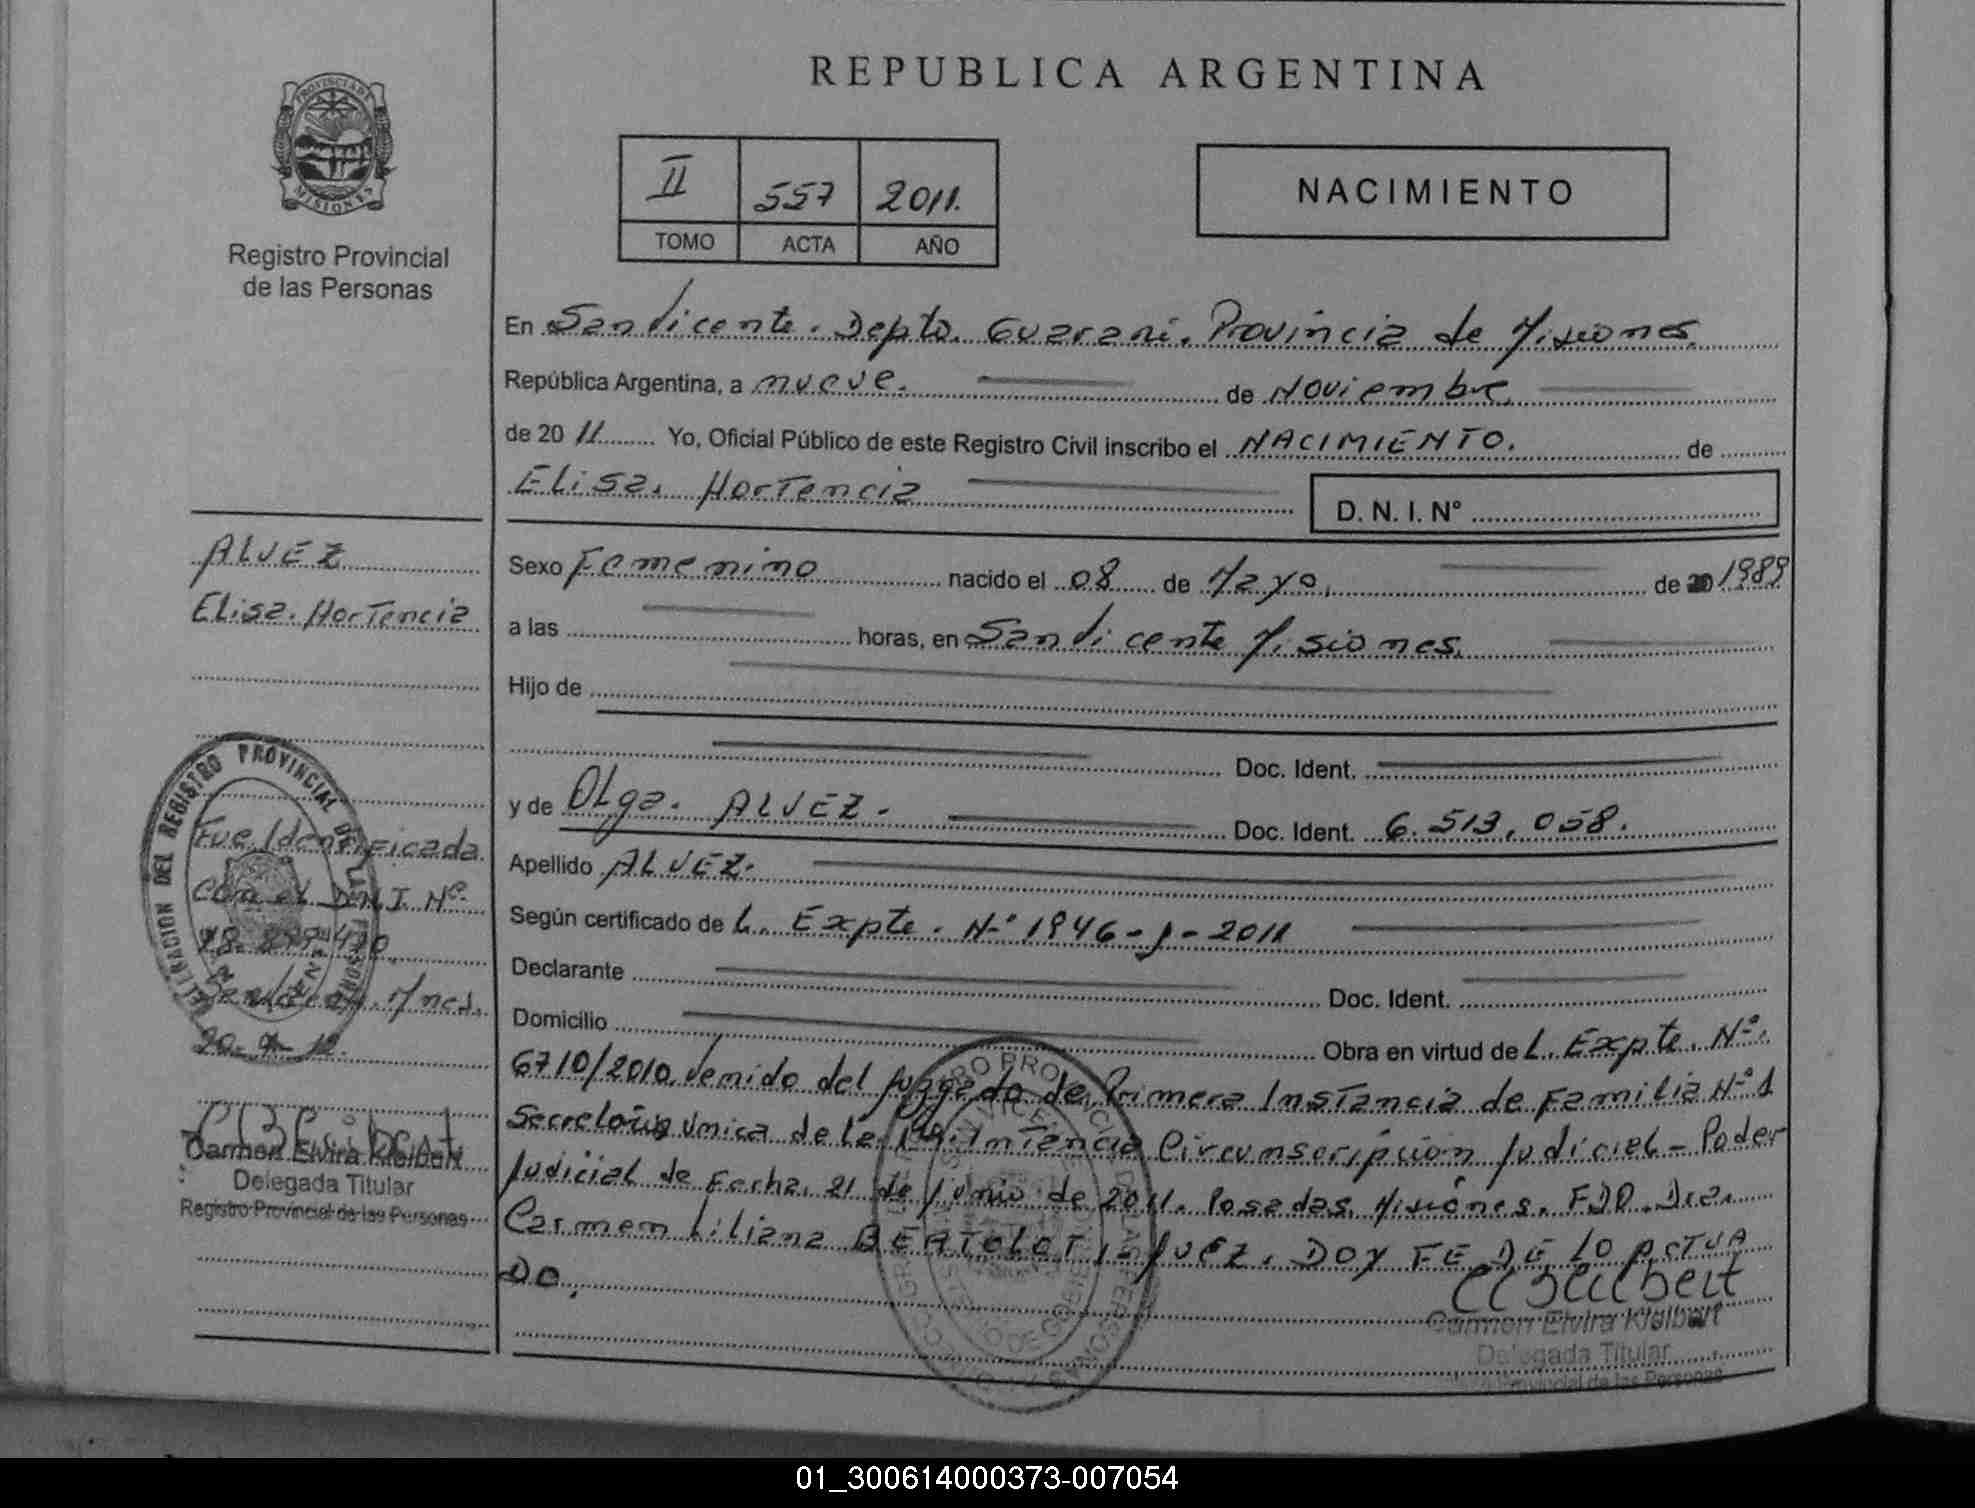 REPUBLICA ARGENTINA
PROVINCIA DE
MISIONES
Registro Provincial
de las Personas
II 557 2011.
TOMO ACTA AÑO
NACIMIENTO
En San Vicente. Depto. Guarani. Provincia de Misiones
República Argentina, a nueve. de Noviembre.
de 20 11 Yo, Oficial Público de este Registro Civil inscribo el NACIMIENTO. de
Elisa. Hortencia
D. N. I. N°
Sexo Femenino nacido el 08 de Mayo. de 20 1989
a las horas, en San Vicente Misiones.
Hijo de
Doc. Ident.
y de Olga. ALVEZ. Doc. Ident. 6.513.058.
Apellido ALVEZ.
Según certificado de L. Expte. N° 1946-J-2011
Declarante Doc. Ident.
Domicilio Obra en virtud de L. Expte. N°.
6710/2010. Venido del Juzgado de Primera Instancia de Familia N° 1
Secretaria Unica de la Circunscripcion Judicial - Poder
Judicial de Fecha. 21 de Junio de 2011. Posadas. Misiones. FDO. Dra.
Carmen Liliana Juez. DOY FE DE LO ACTUA
DO.
Carmen Elvira Kleibert
Delegada Titular
Provincial de las Personas
ALVEZ
Elisa. Hortencia
DEL REGISTRO PROVINCIAL DE LAS PERSONAS
Fue Identificada
Con el D.N.I. N°.
Mnes.
Carmen Elvira Kleibert
Delegada Titular
Registro Provincial de las Personas
01_300614000373-007054